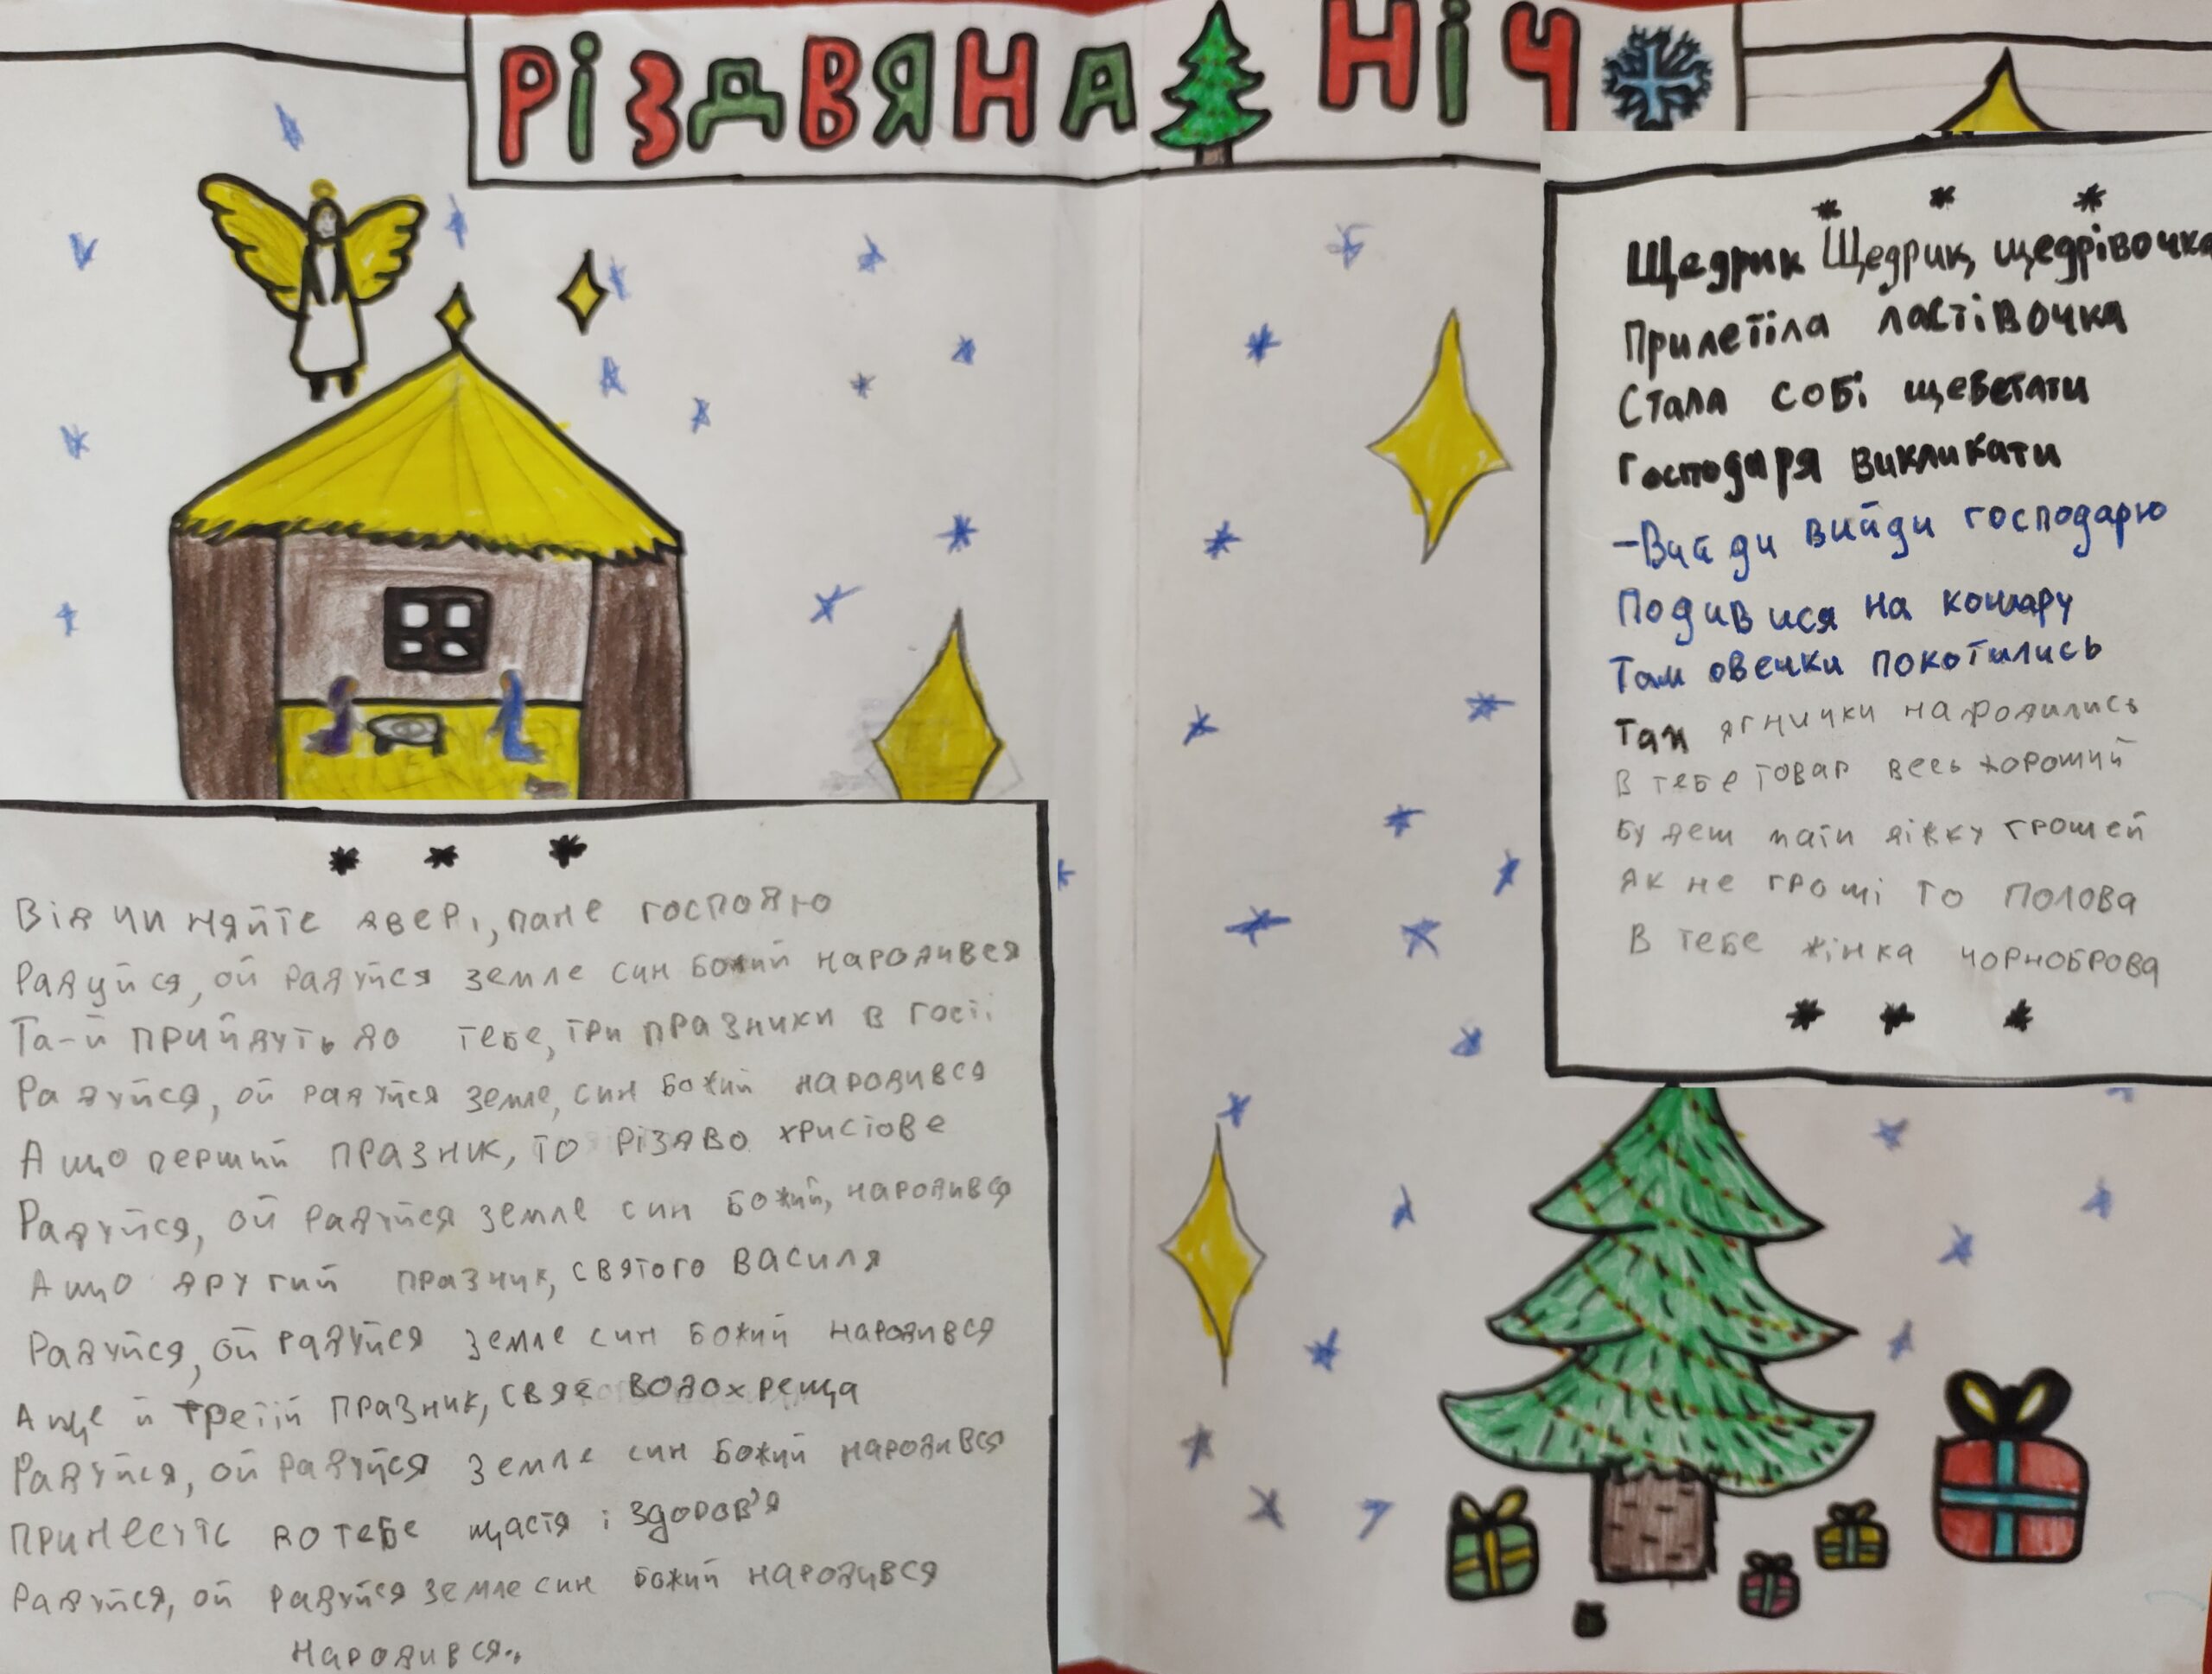 РІЗДВЯНА НІЧ
Щедрик Щедрик, щедрівочка
Прилетіла ластівочка
Стала собі щебетати
Господаря викликати
-Вийди вийди господарю
Подивися на кошару
Там овечки покотились
Там ягнички народились
В тебе товар весь хороший
Будеш мати мірку грошей
Як не гроші то полова
В тебе жінка чорноброва
Відчиняйте двері, пане господю
Радуйся, ой радуйся земле син божий народився
Та-й прийдуть до тебе, три празники в гості
Радуйся, ой радуйся земле, син божий народився
А що перший празник, то Різдво христове
Радуйся, ой радуйся земле син божий, народився
А що другий празник, святого Василя
Радуйся, ой радуйся земле син божий народився
А ще й третій празник, святе водохреща
Радуйся, ой радуйся земле син божий народився
Принесуть до тебе щастя і здоров'я
Радуйся, ой радуйся земле син божий народився
Народився..